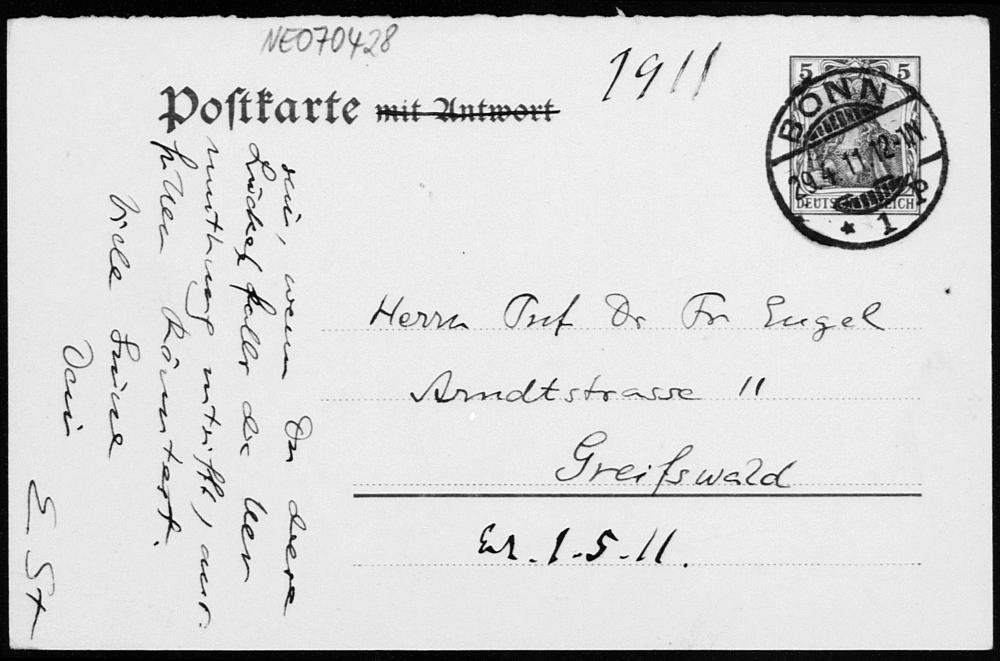 NE070428
1911
Postkarte mit Antwort
5 5
BONN
29.4.11.12-1N
* 1 P
DEUTSCHES REICH
Herrn Prof Dr Fr Engel
Arndtstrasse 11
Greifswald
Er. 1.5.11.
sein, wenn Du diese
Lücke, falls die Ver
muthung zutrifft, aus
füllen könntest.
Viele Grüsse
Dein
E St